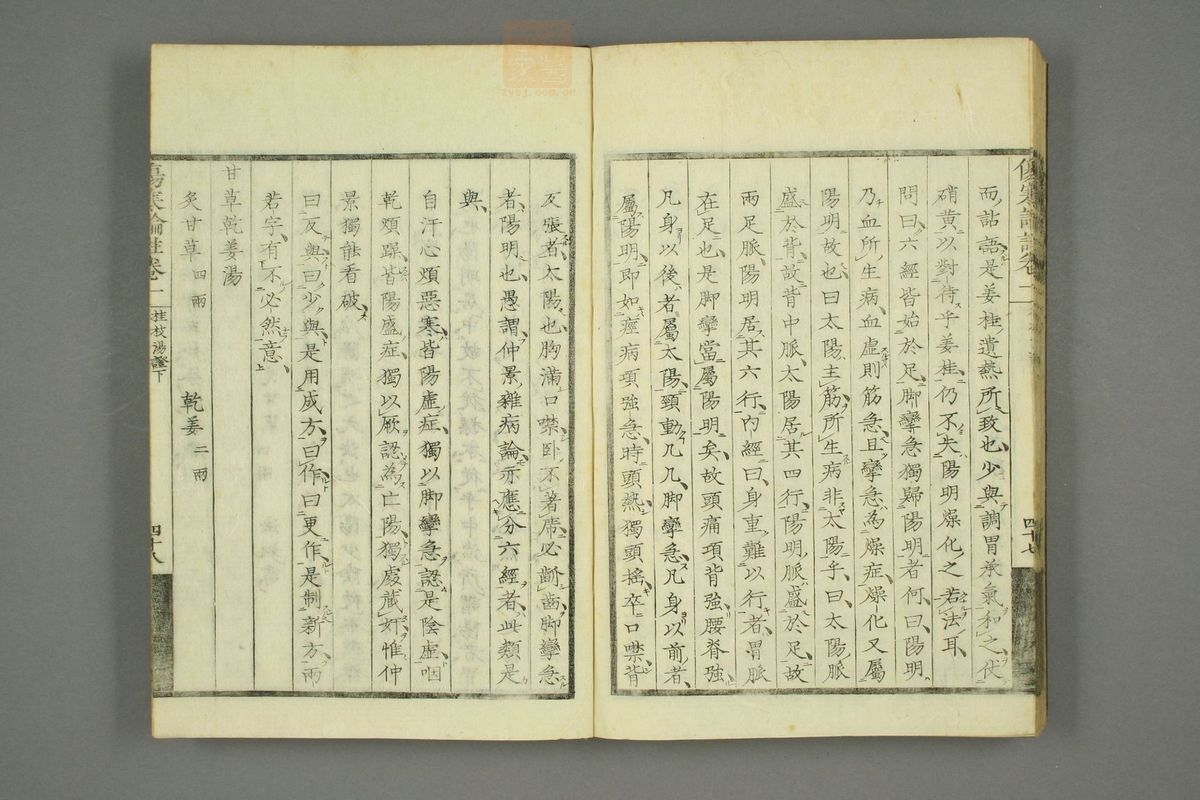 而譫語是姜桂遺熱所致也少與調胃承氣和之伏
硝黃以對待乎姜桂仍不失陽明燥化之若法耳
問曰六經皆始於足脚攣急獨歸陽明者何曰陽明
乃血所生病血虛則筋急且攣急為燥症燥化又屬
陽明故也曰太陽主筋所生病非太陽乎曰太陽脈
盛於背故背中脈太陽居其四行陽明脈盛於足故
兩足脈陽明居其六行內經曰身重難以行者胃脈
在足也是脚攣當屬陽明矣故頭痛項背強腰脊強
凡身以後者屬太陽頸動几几脚攣急凡身以前者
屬陽明即如痙病項強急時頭熱獨頭搖卒口噤背
四十七
反張者太陽也胸滿口噤卧不著席必齘齒脚攣急
者陽明也愚謂仲景雜病論亦應分六經者此類是
與
自汗心煩惡寒皆陽虛症獨以脚攣急認是陰虛咽
乾煩躁皆陽盛症獨以厥認為亡陽獨處藏奸惟仲
景獨能看破
曰反與曰少與是用成方曰作曰更作是制新方兩
若字有不必然意
甘草乾姜湯
炙甘草 四兩 乾姜 二兩
傷寒論註卷二 桂枝湯證下 四十八
zysj.com.cn